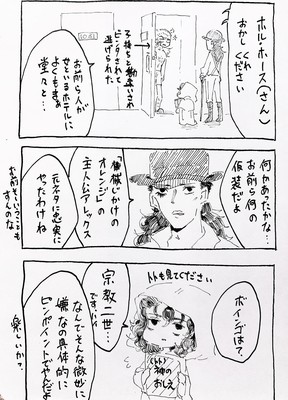 ホル・ホース(さん)
おかしくれ
ください
子持ちと勘違いされ
ビンタされて
逃げられた
お前ら人が
せといるホテルに
よくもまぁ
堂々と…
何かあったかな…
お前ら何の
仮装だよ
「時計じかけの
オレンジ」の
主人公アレックス
元ネタに忠実に
やったわけね
お前そういうことも
すんのな
ボインゴは?
トトも見てください
宗教二世…
ですトト
(トト)神の
おしえ
なんでそんな微妙に
嫌なの具体的に
ピンポイントでやんだよ
楽しいか?